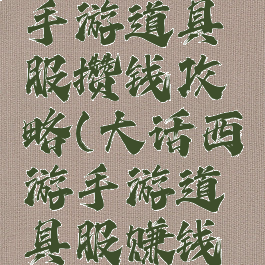 手游道具
服攒钱攻
略(大话西
游手游道
具服赚钱